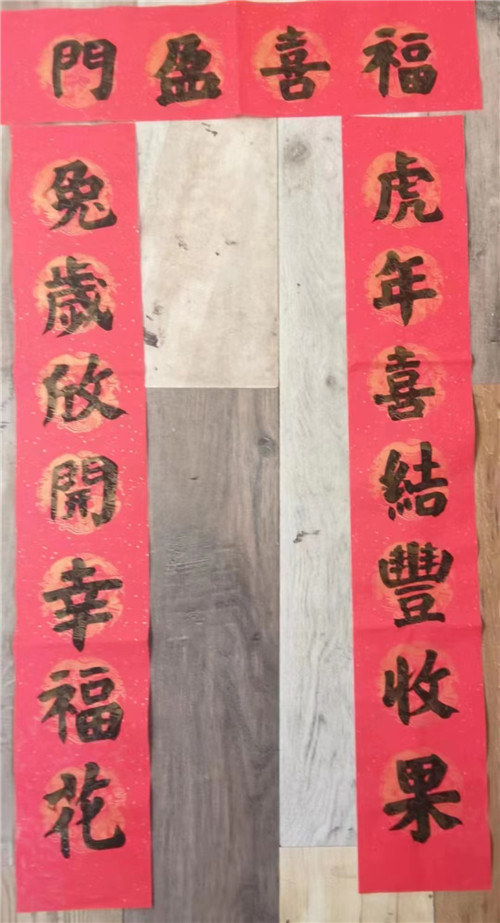 福喜盈門
虎年喜結豐收果
兔歲欣開幸福花